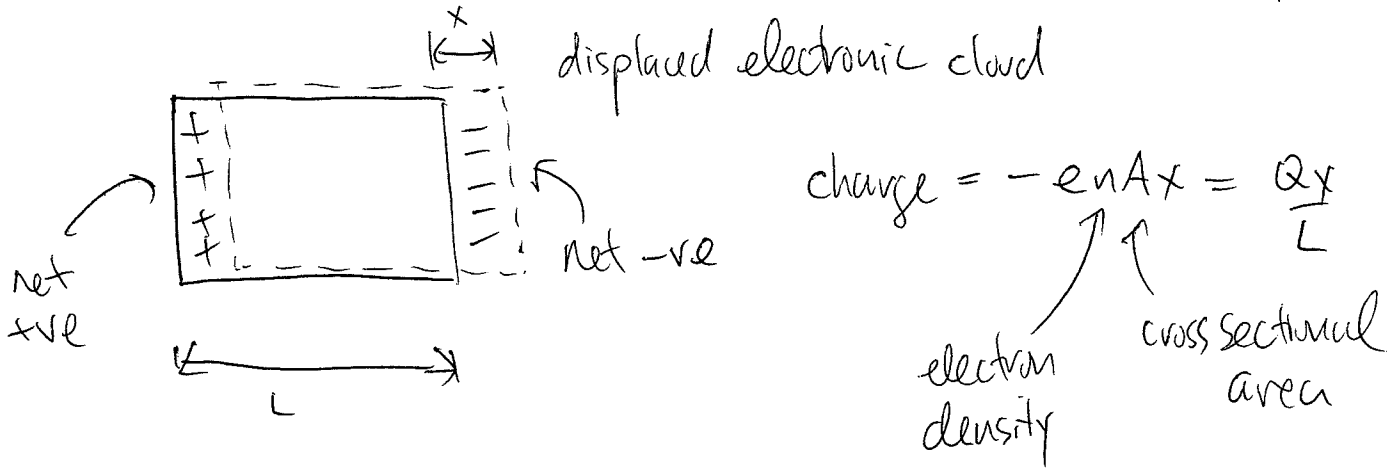 x
displaced electronic cloud
+ -
+ -
+ -
+ -
-
net +ve
net -ve
L
charge = - enAx = Qx/L
electron density
cross sectional area